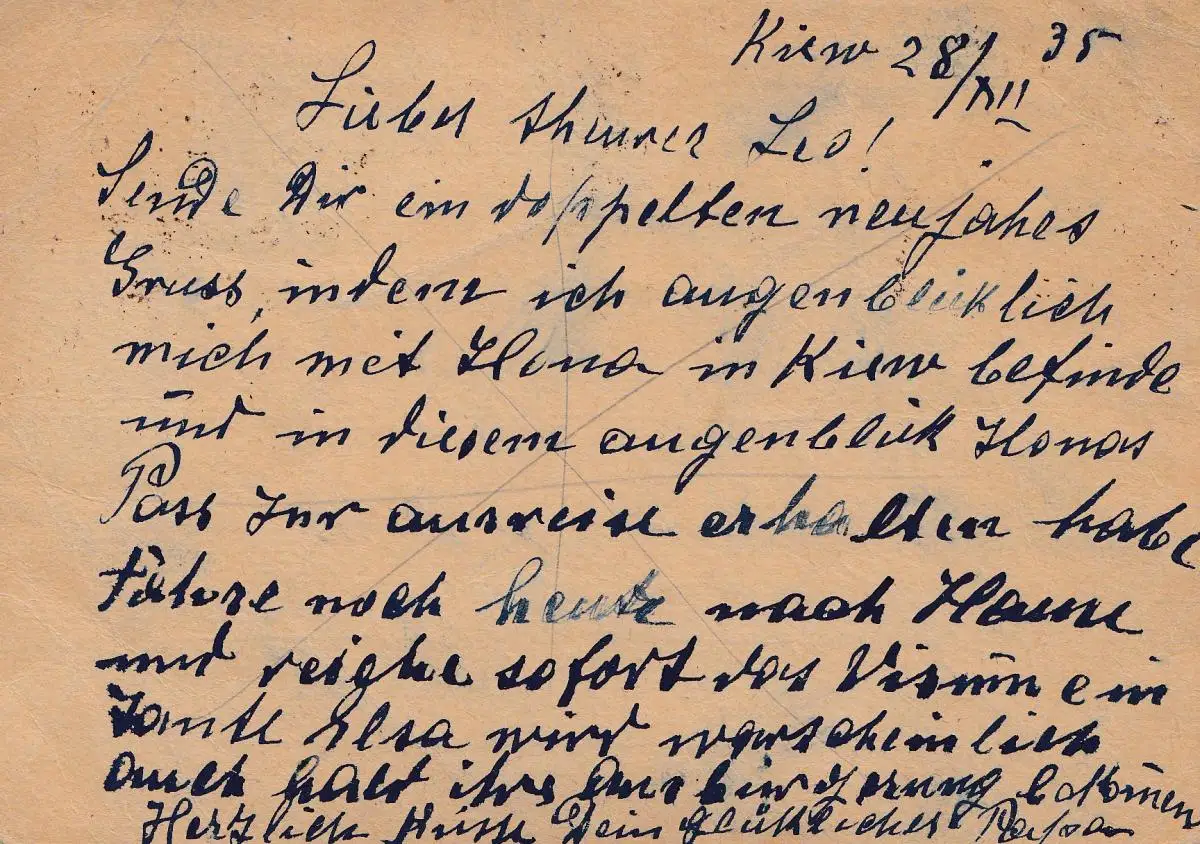 Kiew 28/XII 35
Lieber theurer Leo!
Sende Dir ein doppelten neujahes
Gruss, indem ich augenblicklich
mich mit Ilona in Kiew befinde
und in diesem augenblick Ilonas
Pass zur ausreise erhalten habe
fahre noch heute nach Hause
und reighe sofort das Visum ein
Tante Elsa wird warscheinlich
auch bald ihre Ausbürgerung bekommen
Herzlich Küsse Dein glüklicher Papa